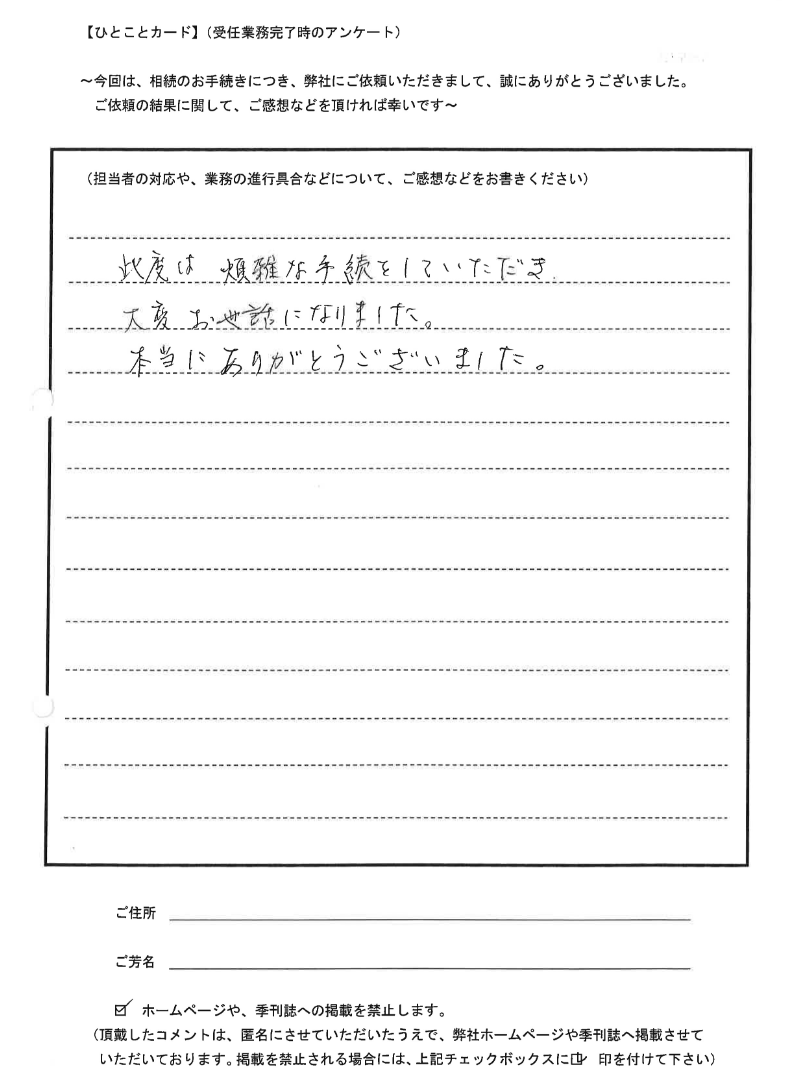 【ひとことカード】（受任業務完了時のアンケート）
～今回は、相続のお手続きにつき、弊社にご依頼いただきまして、誠にありがとうございました。
ご依頼の結果に関して、ご感想などを頂ければ幸いです～
（担当者の対応や、業務の進行具合などについて、ご感想などをお書きください）
此度は 煩雑な手続をしていただき
大変 お世話になりました。
本当に ありがとうございました。
ご住所
ご芳名
☑ ホームページや、季刊誌への掲載を禁止します。
（頂戴したコメントは、匿名にさせていただいたうえで、弊社ホームページや季刊誌へ掲載させて
いただいております。掲載を禁止される場合には、上記チェックボックスに☑ 印を付けて下さい）